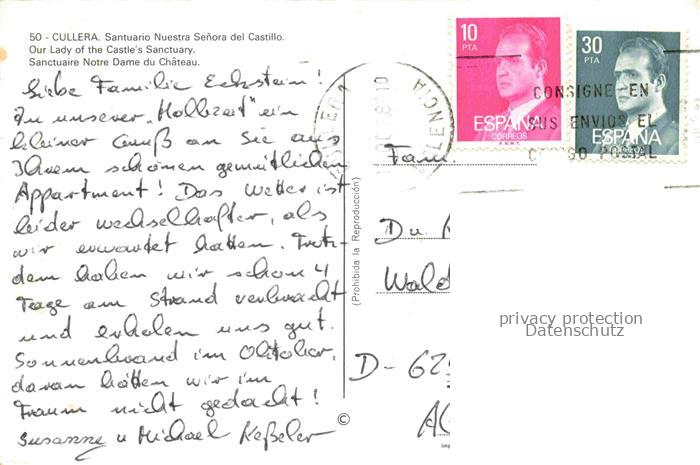 50 - CULLERA. Santuario Nuestra Señora del Castillo.
Our Lady of the Castle's Sanctuary.
Sanctuaire Notre Dame du Château.
Liebe Familie Eckstein!
Zu unserer "Halbzeit" ein
kleiner Gruß an Sie aus
Ihrem schönen gemütlichen
Appartment! Das Wetter ist
leider wechselhafter, als
wir erwartet hatten. Trotz-
dem haben wir schon 4
Tage am Strand verbracht
und erholen uns gut.
Sonnenbrand im Oktober,
davon hätten wir im
Traum nicht gedacht!
Susanne u Michael Keßeler
(Prohibida la Reproducción)
©
10
PTA
ESPAÑA
CORREOS
F.N.M.T.
30
PTA
ESPAÑA
VALENCIA
CONSIGNE EN
SUS ENVIOS EL
POSTAL
Fam.
Wald
D-62
privacy protection
Datenschutz